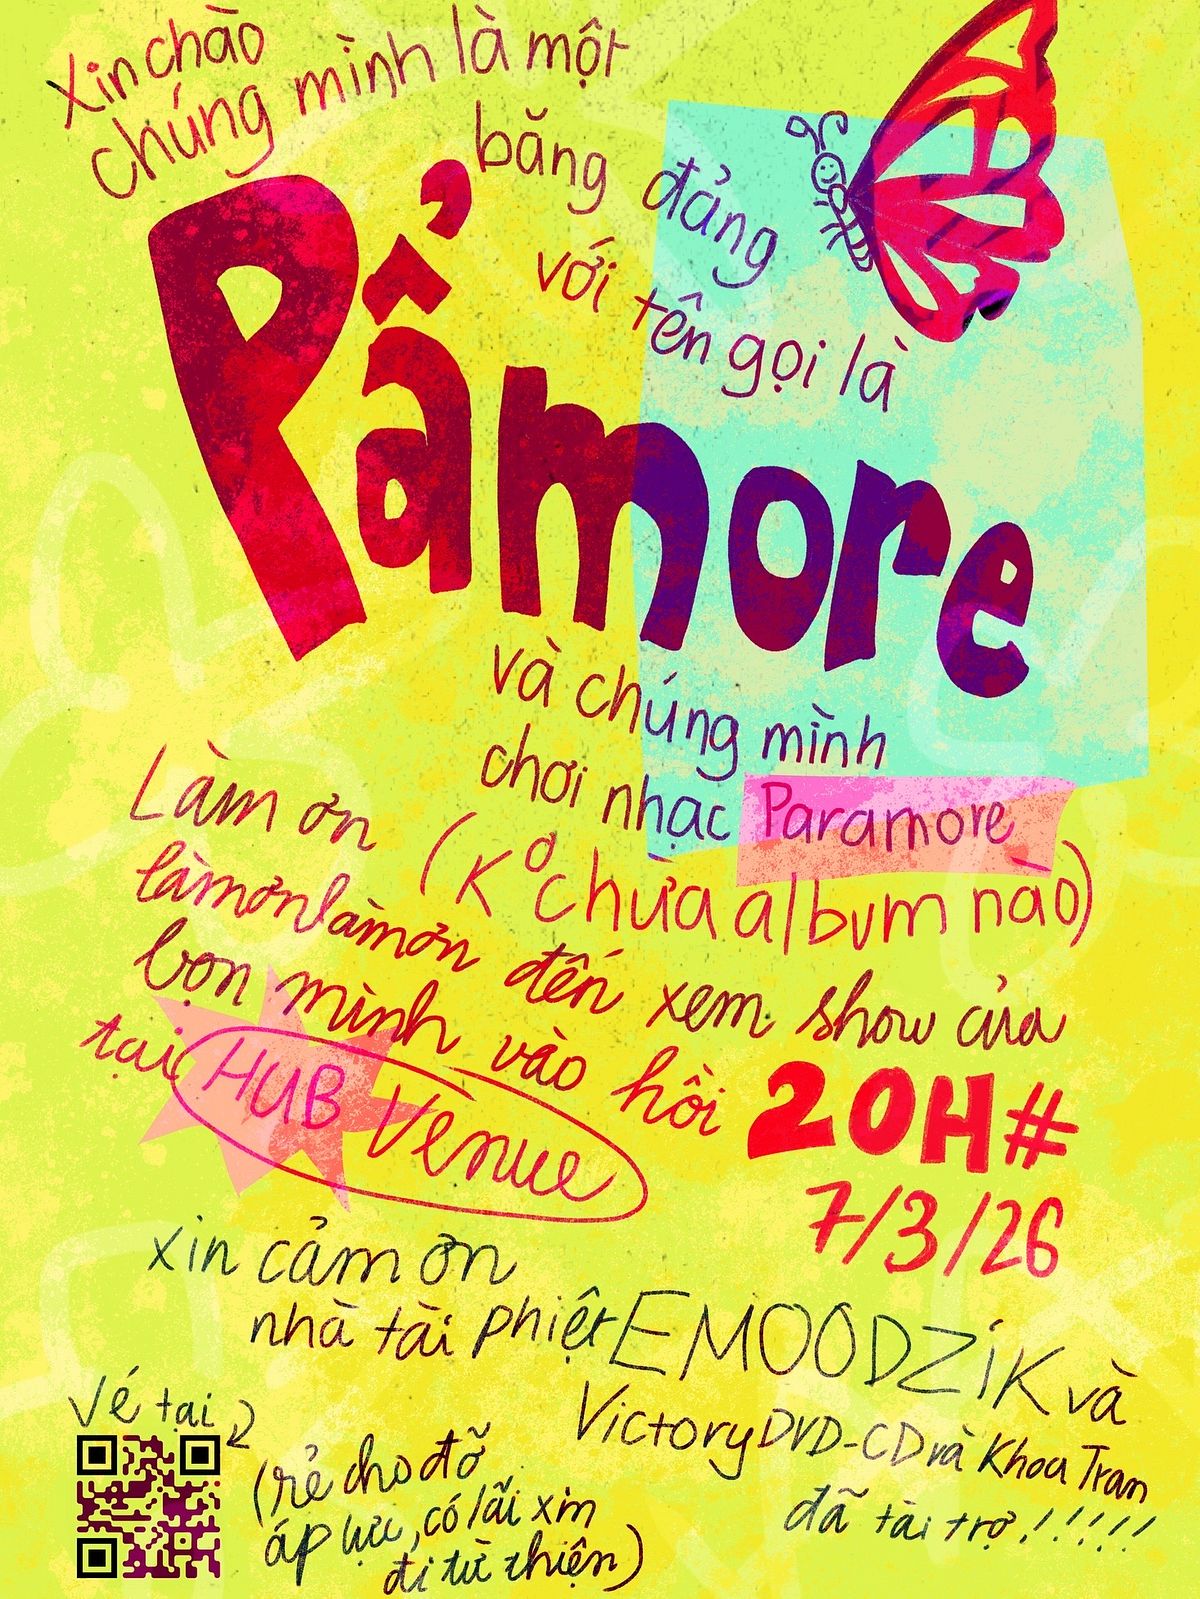 xin chào
chúng mình là một
băng đảng
với tên gọi là
Pẩmore
và chúng mình
chơi nhạc Paramore
(K° chừa album nào)
Làm ơn
làmơnlàmơn đến xem show của
bọn mình vào hồi 20H#
7/3/26
tại HUB Venue
xin cảm ơn
nhà tài phiệt EMOODZiK và
Victory DVD-CD và Khoa Tran
đã tài trợ!!!!!
Vé tại
(rẻ cho đỡ
áp lực, có lãi xin
đi từ thiện)